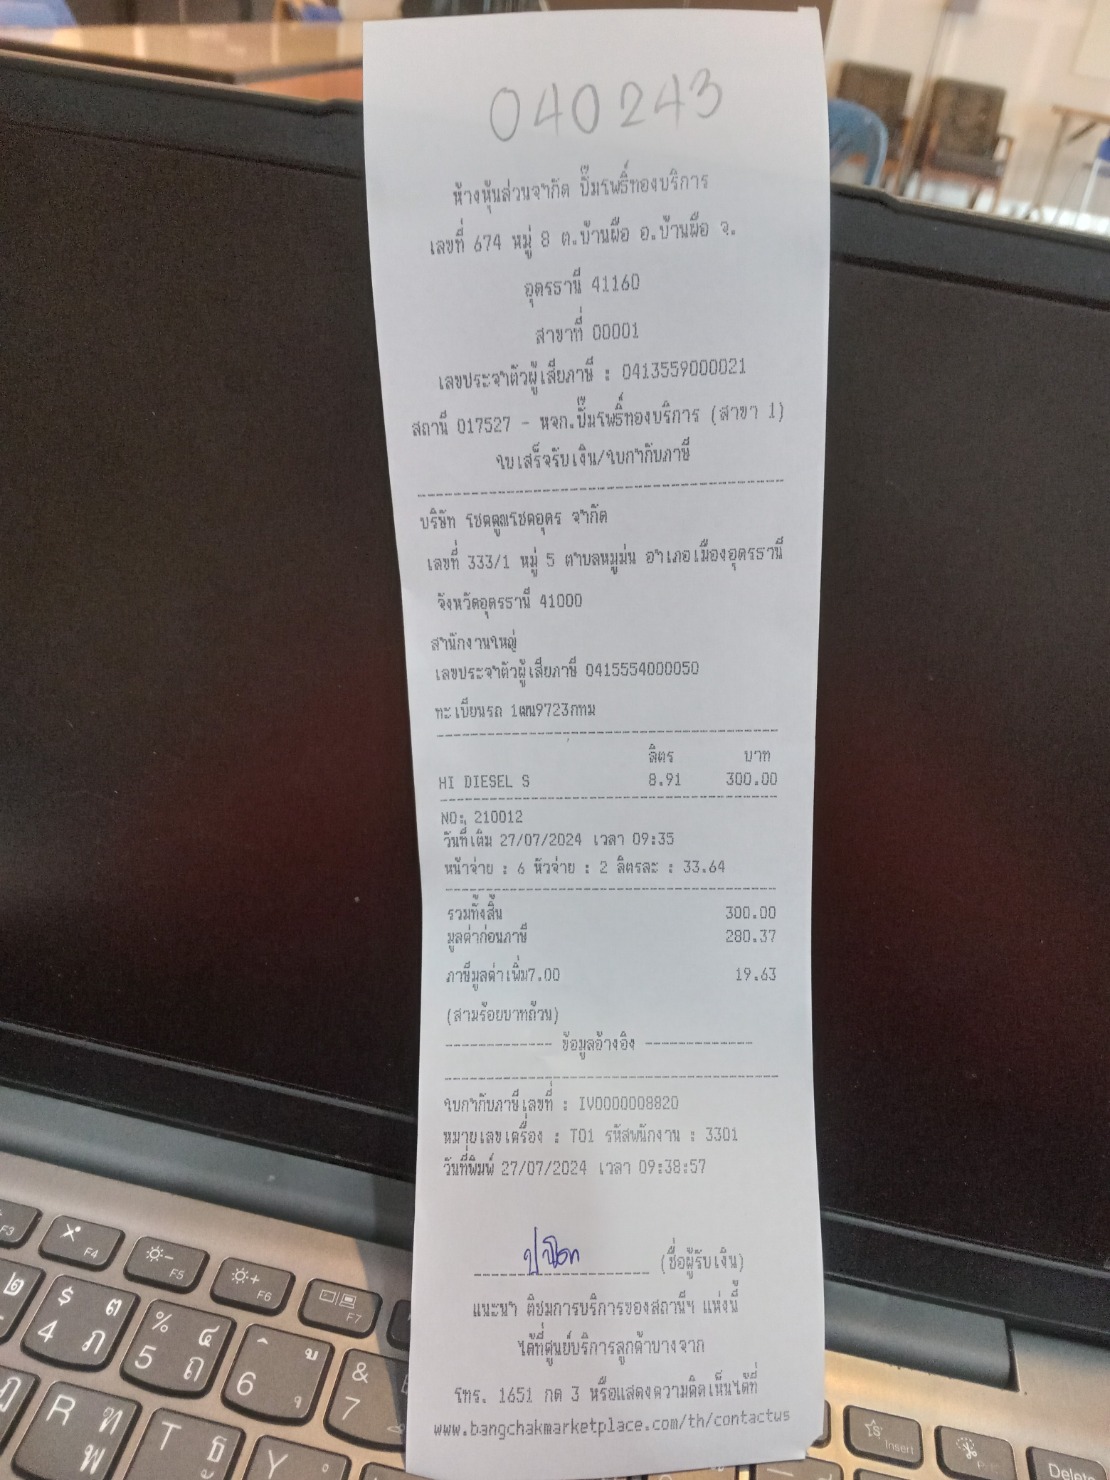 040243
ห้างหุ้นส่วนจำกัด ปั๊มโพธิ์ทองบริการ
เลขที่ 674 หมู่ 8 ต.บ้านผือ อ.บ้านผือ จ.
อุดรธานี 41160
สาขาที่ 00001
เลขประจำตัวผู้เสียภาษี : 0413559000021
สถานี 017527 - หจก.ปั๊มโพธิ์ทองบริการ (สาขา 1)
ใบเสร็จรับเงิน/ใบกำกับภาษี
บริษัท โชคคูณโชคอุดร จำกัด
เลขที่ 333/1 หมู่ 5 ตำบลหมูม่น อำเภอเมืองอุดรธานี
จังหวัดอุดรธานี 41000
สำนักงานใหญ่
เลขประจำตัวผู้เสียภาษี 0415554000050
ทะเบียนรถ 1ฒน9723กทม
ลิตร บาท
HI DIESEL S 8.91 300.00
NO: 210012
วันที่เติม 27/07/2024 เวลา 09:35
หน้าจ่าย : 6 หัวจ่าย : 2 ลิตรละ : 33.64
รวมทั้งสิ้น 300.00
มูลค่าก่อนภาษี 280.37
ภาษีมูลค่าเพิ่ม7.00 19.63
(สามร้อยบาทถ้วน)
------------ ข้อมูลอ้างอิง ------------
ใบกำกับภาษีเลขที่ : IV0000008820
หมายเลขเครื่อง : T01 รหัสพนักงาน : 3301
วันที่พิมพ์ 27/07/2024 เวลา 09:38:57
(ชื่อผู้รับเงิน)
แนะนำ ติชมการบริการของสถานีฯ แห่งนี้
ได้ที่ศูนย์บริการลูกค้าบางจาก
โทร. 1651 กด 3 หรือแสดงความคิดเห็นได้ที่
www.bangchakmarketplace.com/th/contactus
F4 F5 F6 F7
$ ๓ 4 ภ
% ๔ 5 ถ
6
& 7
R ฑ พ
T ธ
Y
Insert
Delete